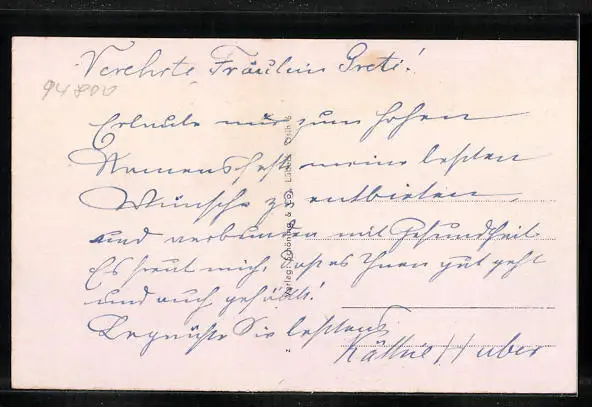 Verehrte Fräulein Greti!
94800
Erlaube mir zum hohen
Namensfeste meine besten
Wünsche zu entbieten
und verbunden mit Gesundheit.
Es freut mich, daß es Ihnen gut geht
und auch gefällt!
Begrüße Sie bestens
Käthie Huber
Verlag: Schöning & Co., Lübeck